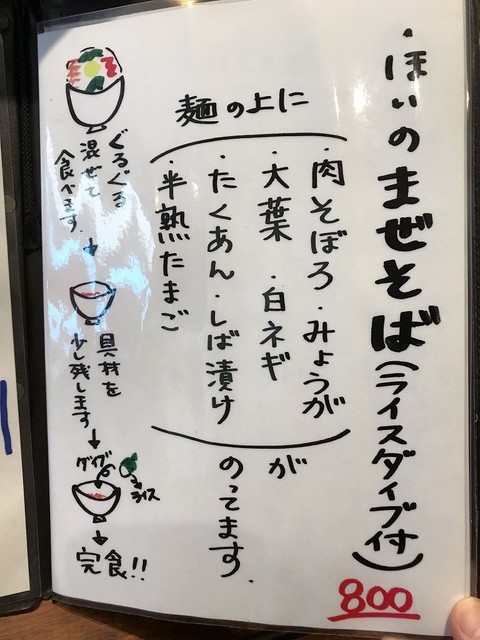 ・ほいのまぜそば(ライスダイブ付)
800
麺の上に
・肉そぼろ・みょうが
・大葉・白ネギ
・たくあん・しば漬け
・半熟たまご
が
のってます.
ぐるぐる
混ぜて
食べます.
具材を
少し残します
ググッ
ライス
完食!!